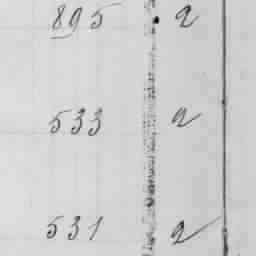 895 2
533 2
531 2